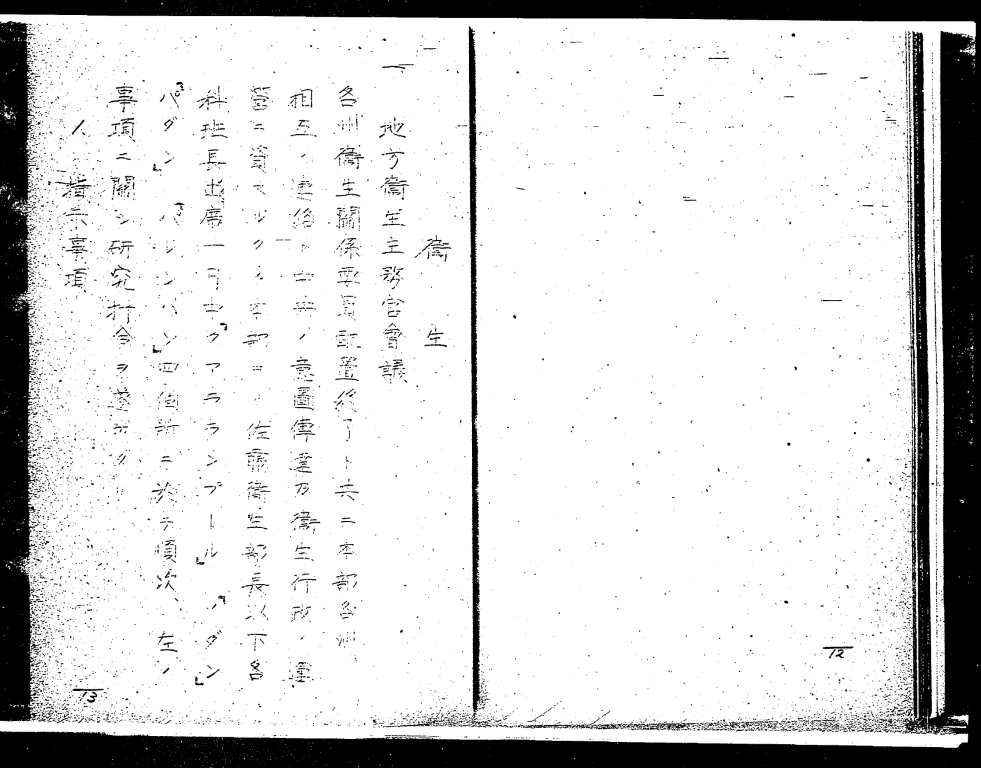 12
衛生
一
地方衛生主務官會議
各州衛生關係要員配置終了ト共ニ本部各州
相互ノ連絡ト中央ノ意圖傳達及衛生行政ノ運
營ニ資スル爲メ本部ニ佐藤衛生部長以下各
科班長出席一月 「クアラランプール」、「メダン」
「パダン」「パレンバン」四個所ニ於テ順次、左ノ
事項ニ關シ研究打合ヲ遂ゲタリ
指示事項
13